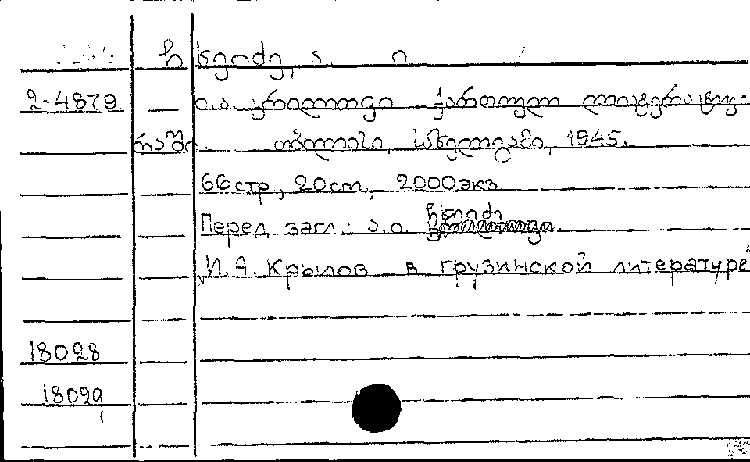 ჩხეიძე, ა. ი.
2-4879 — ი.ა. კრილოვი ქართულ ლიტერატუ-
რაში. თბილისი, სახელგამი, 1945.
66 стр, 20 cm, 2000 экз
Перед загл.: ა.ი. ჩხეიძე
И. А. Крылов в грузинской литературе
18028
18029